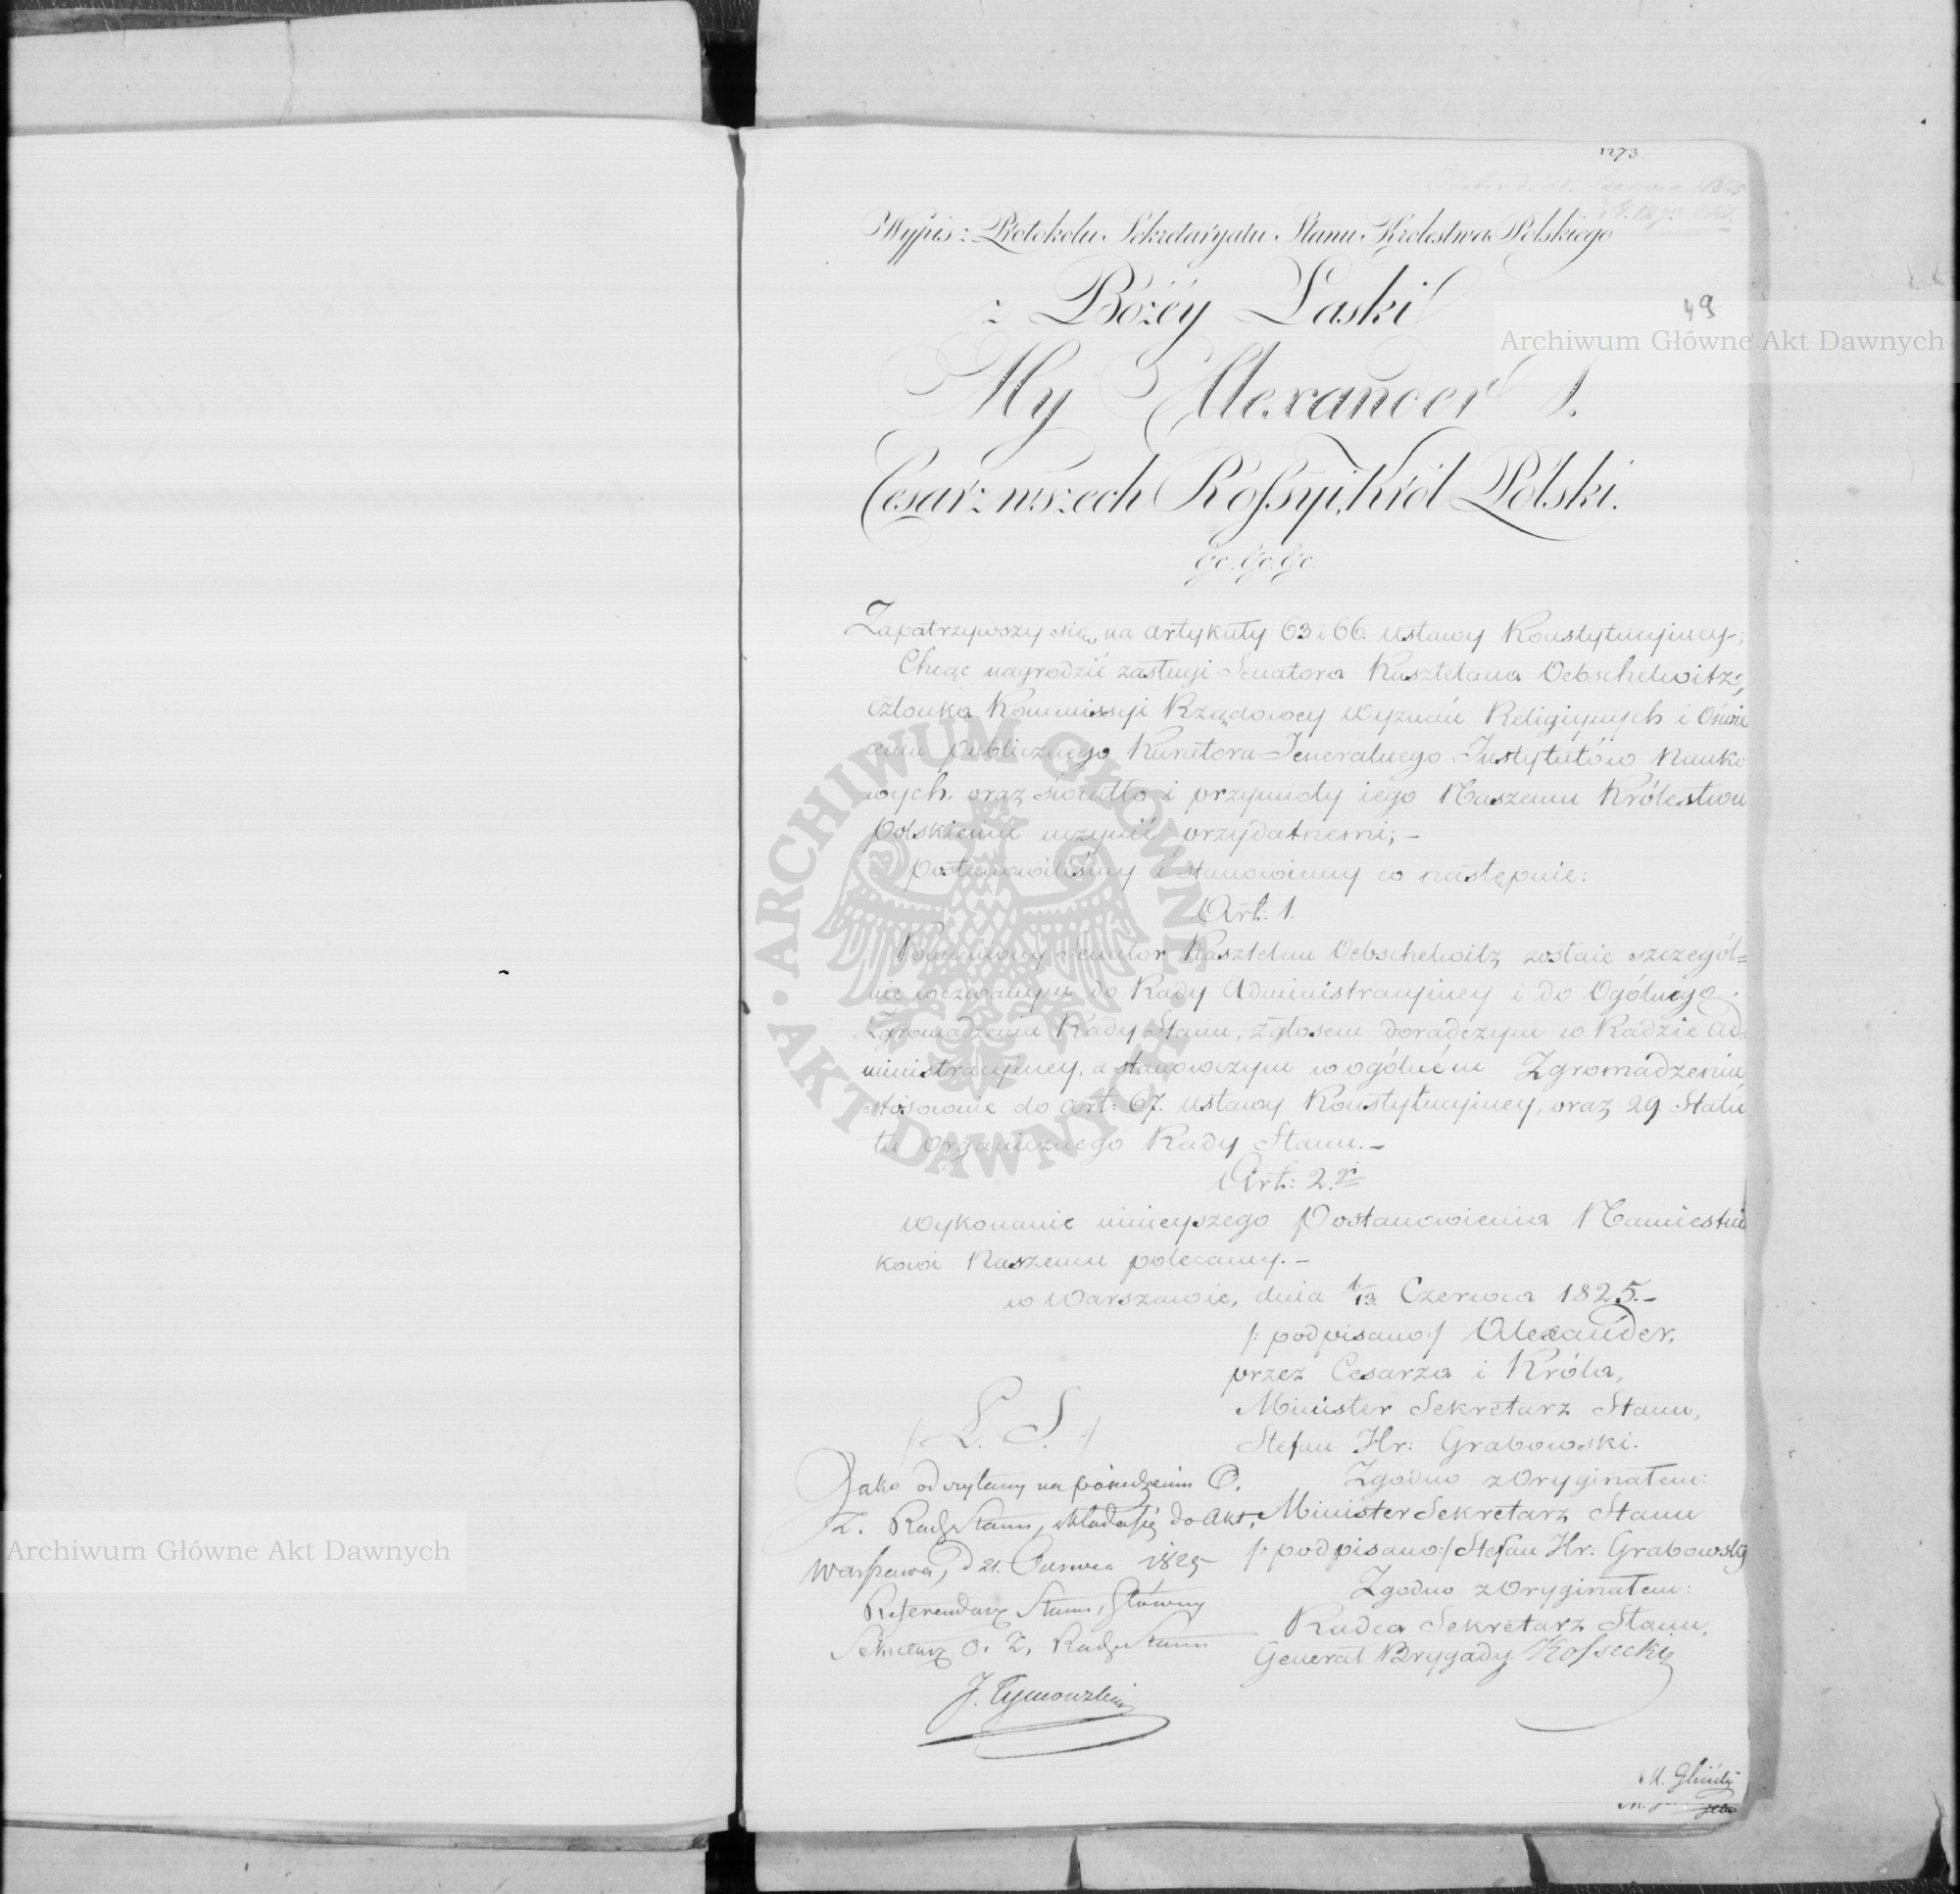 1273.
49
Wypis z Protokołu Sekretaryatu Stanu Królestwa Polskiego
z Bożéy Łaski
My Alexander I.
Cesarz wszech Rossyi, Król Polski.
&c. &c. &c.
Zapatrzywszy się na artykuły 63 i 66. ustawy Konstytucyiney;
Chcąc nagrodzić zasługi Senatora Kasztelana Oebschelwitz,
członka Kommissyi Rządowey Wyznań Religiynych i Oświe
cenia publicznego Kuratora Jeneralnego Instytutów Nauko
wych, oraz światło i przymioty iego Naszemu Królestwu
Polskiemu uczynić przydatnemi; –
Postanowiliśmy i stanowiemy co następuie:
Art: 1.
Senator Kasztelan Oebschelwitz zostaie szczegól=
nie wezwanym do Rady Administracyiney i do Ogólnego
Zgromadzenia Rady Stanu, z głosem doradczym w Radzie Ad=
ministracyiney, a stanowczym w ogólném Zgromadzeniu
stosownie do art: 67. ustawy Konstytucyiney, oraz 29 Statu
tu Organicznego Rady Stanu. –
Art: 2.gi
Wykonanie ninieyszego Postanowienia Namiestni
kowi Naszemu polecamy. –
w Warszawie, dnia 1/13. Czerwca 1825. –
/: podpisano :/ Alexander.
przez Cesarza i Króla,
Minister Sekretarz Stanu,
Stefan Hr: Grabowski.
/: L. S. :/
Zgodno z Oryginałem:
Minister Sekretarz Stanu
/: podpisano :/ Stefan Hr: Grabowski
Zgodno z Oryginałem:
Radca Sekretarz Stanu,
Generał Brygady Kossecki
Jako odczytany na posiedzeniu O.
Z. Rady Stanu, składa się do Akt.
Warszawa, d 21. Czerwca 1825
Referendarz Stanu, Główny
Sekretarz O. Z. Rady Stanu
J. Tymowski
Archiwum Główne Akt Dawnych
Archiwum Główne Akt Dawnych
ARCHIWUM GŁÓWNE AKT DAWNYCH